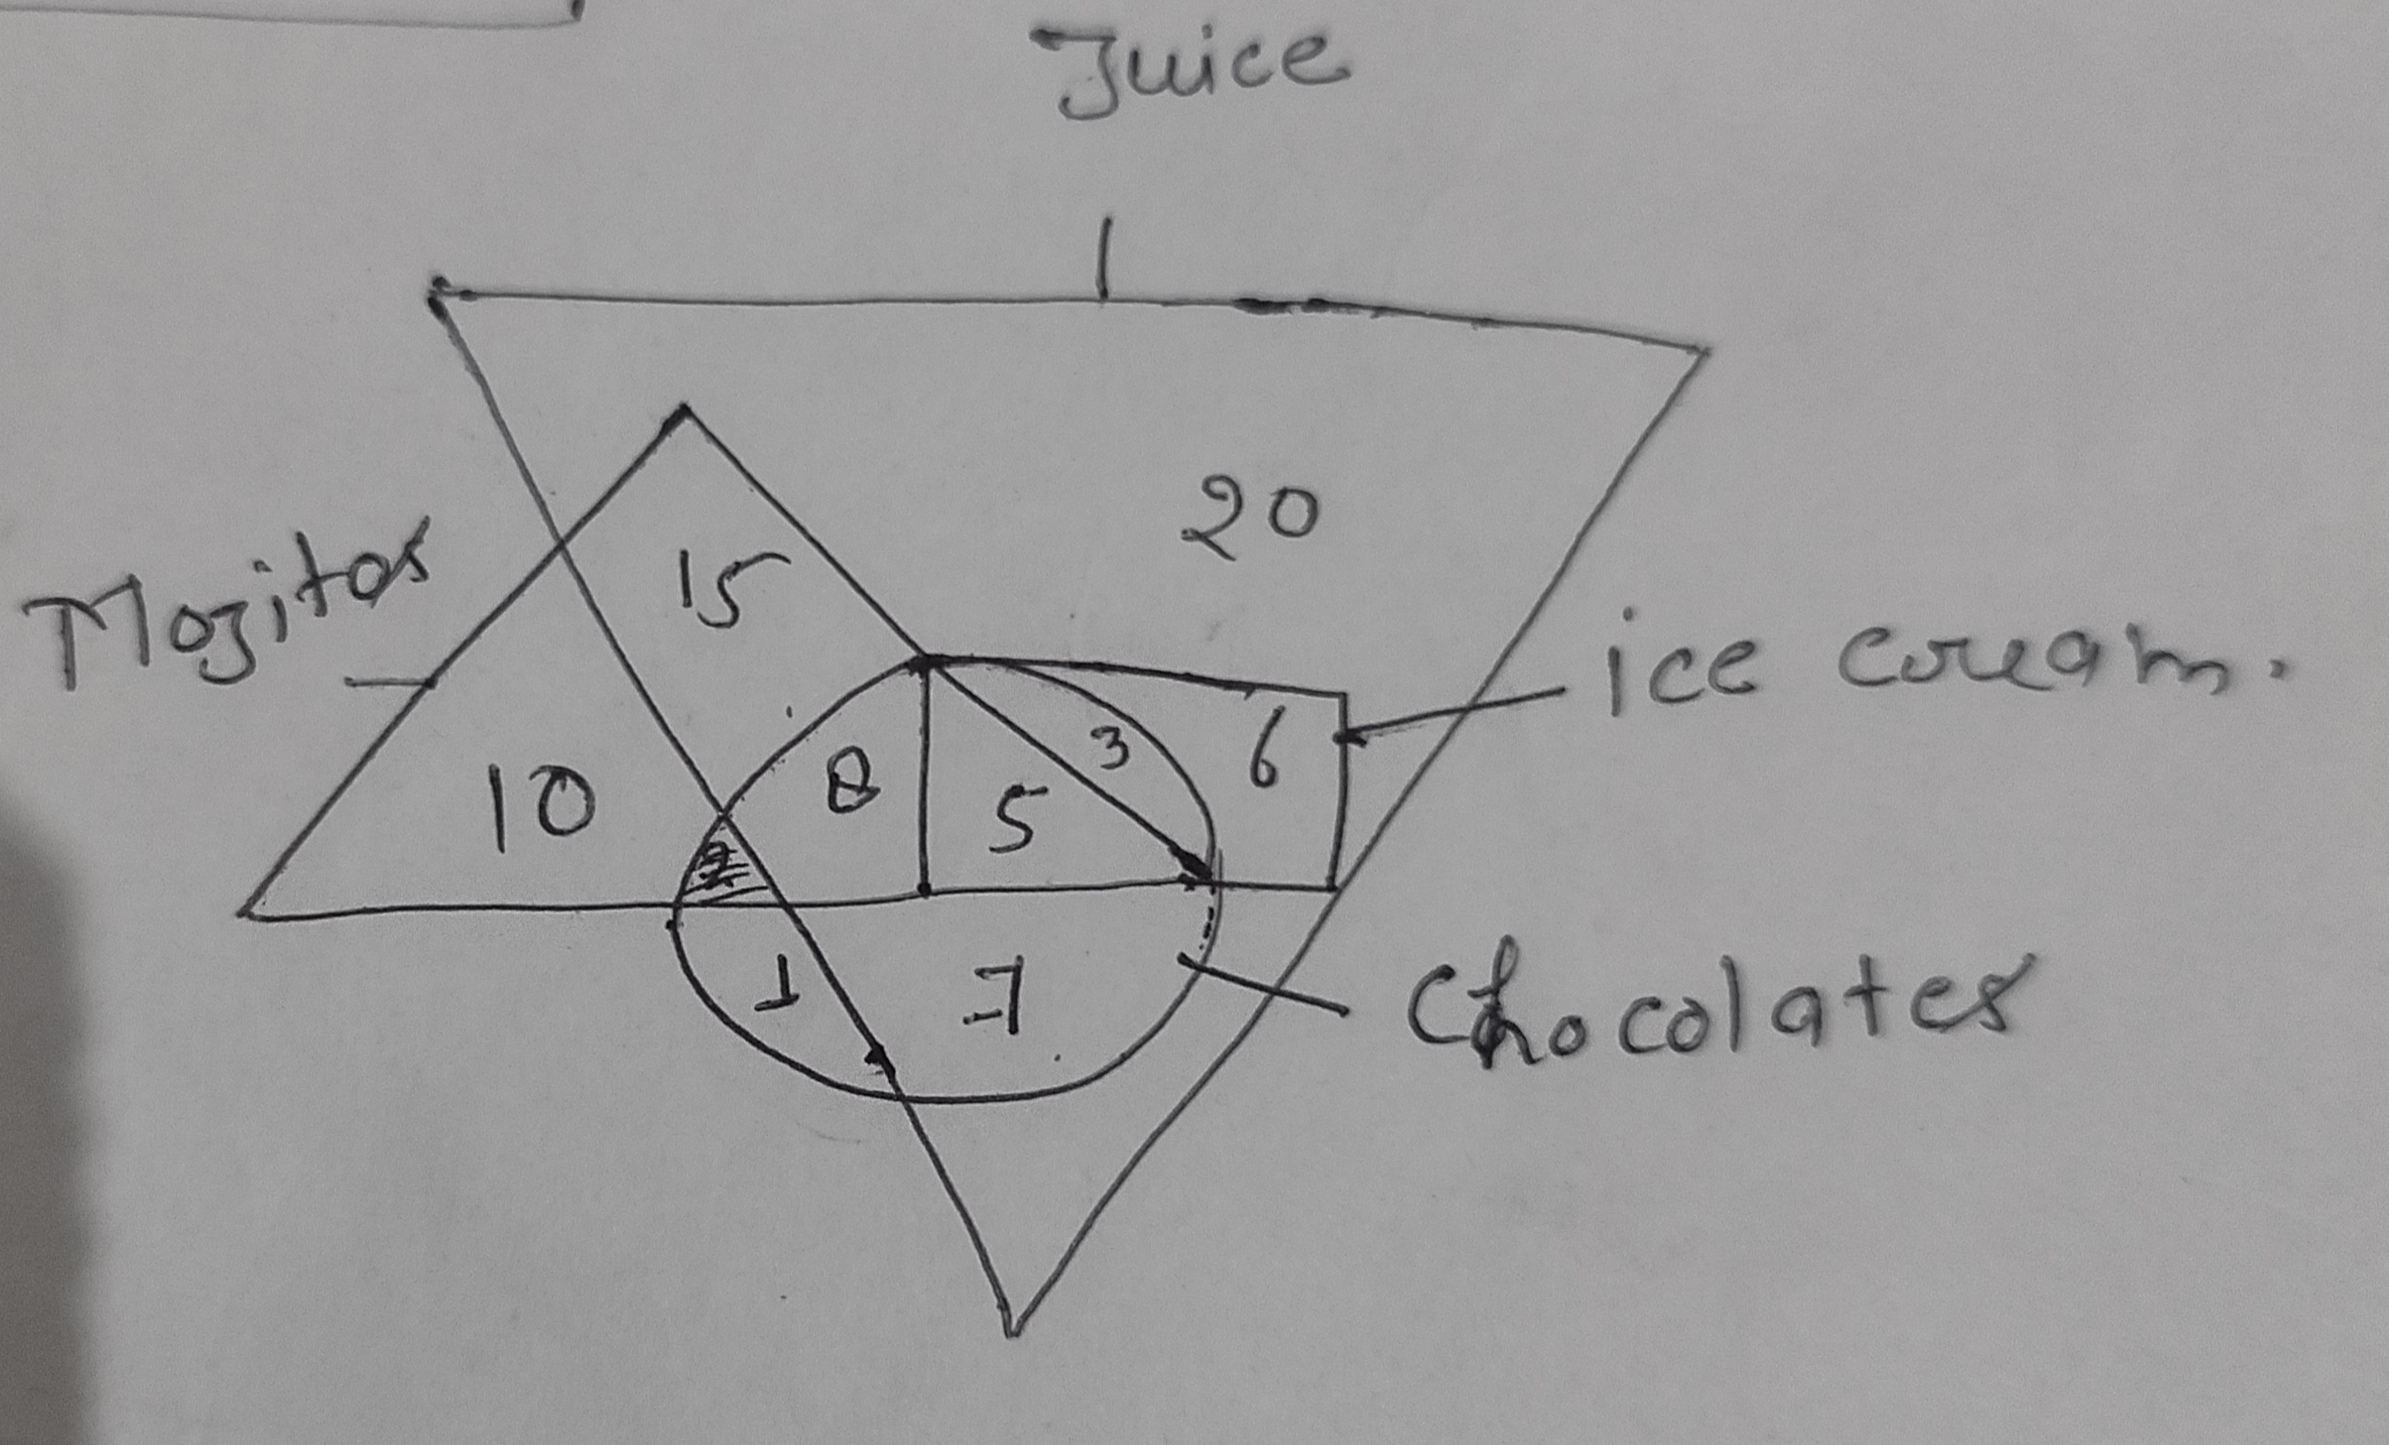 Juice
20
Mojitos
15
ice cream.
10
8
5
3
6
2
1
7
Chocolates